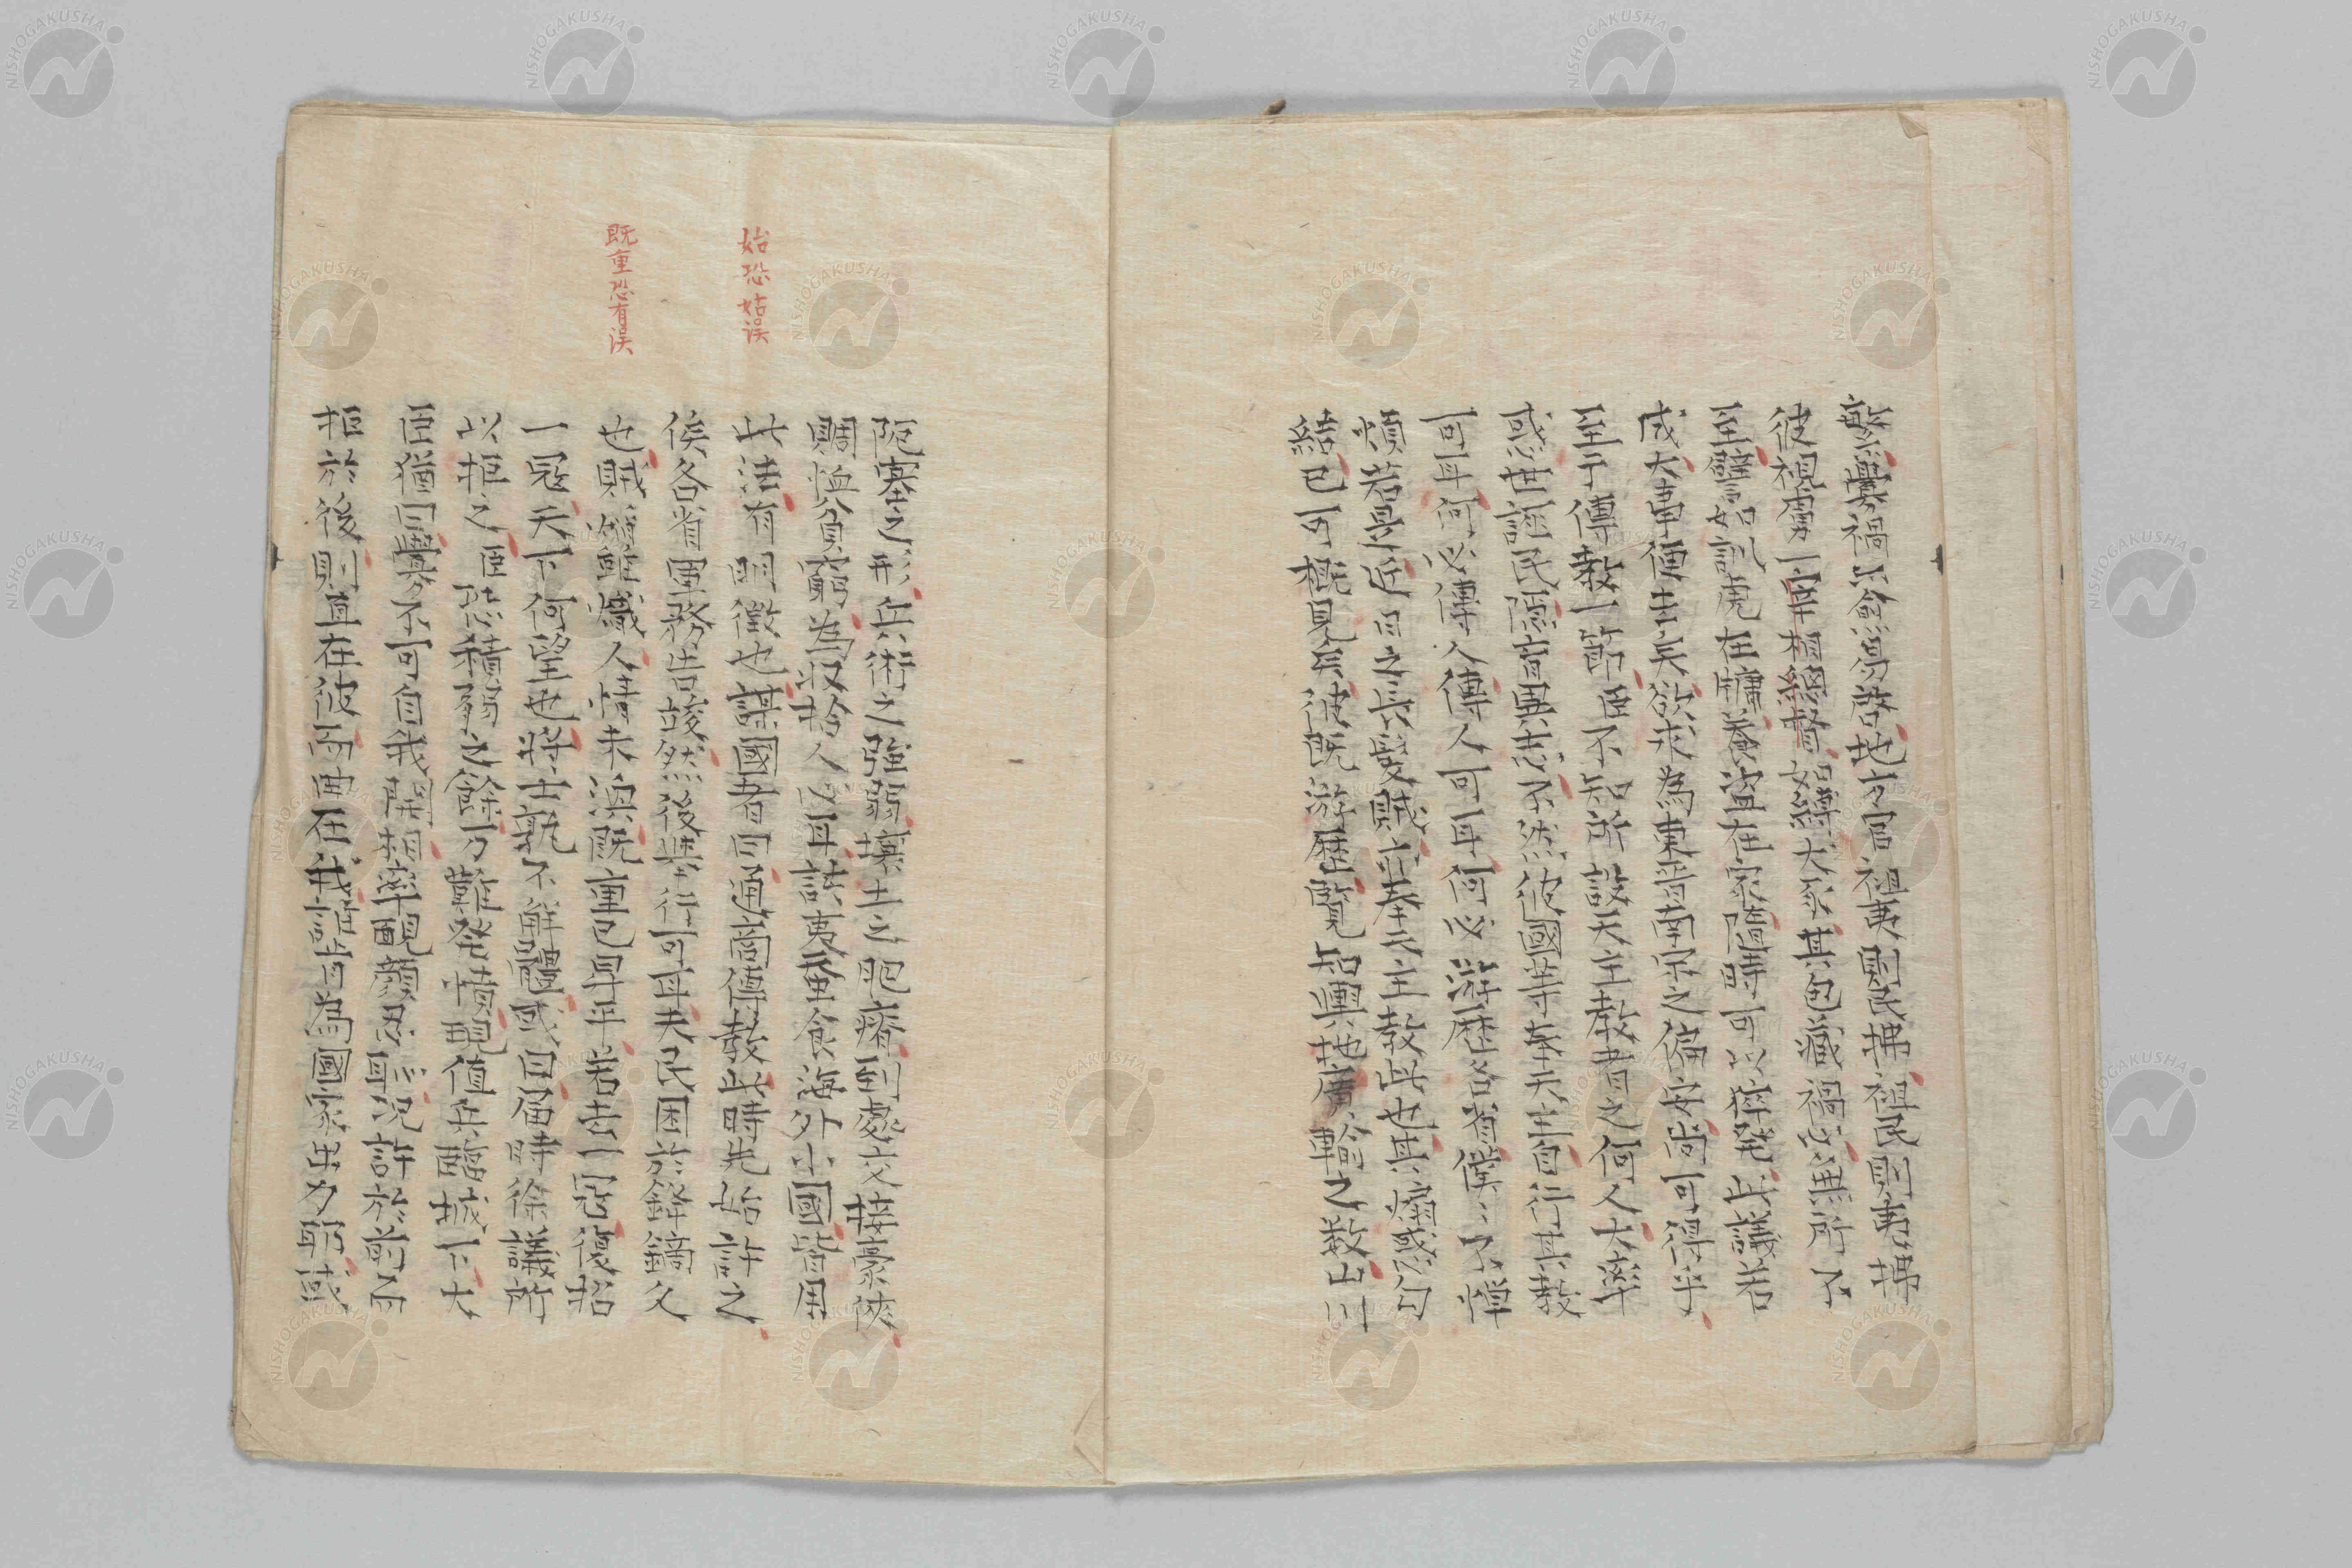 繁釁禍不愈易啓地方官袒夷則民拂袒民則夷拂
彼視虜一宰相總督如縛犬豕其包藏禍心無所不
至譬如訊虎在牖養盜在家隨時可以猝發此議若
成大事便去矣欲求為東晉南宋之偏安尚可得乎
至于傳教一節臣不知所設天主教者之何人大率
惑世誣民隱蓄異志不然彼國等奉天主自行其教
可耳何必傳人傳人可耳何必游歷各省僕〻不憚
煩若是近日之長髮賊亦奉天主教與也其煽惑勾
結已可概見矣彼既游歷覽知輿地廣輪之數山川
阨塞之形兵術之強弱壤土之肥瘠到處交接豪俠
賙恤貧窮為收拾人心耳該夷蚕食海外小國皆用
始恐姑誤
此法有明徵也謀國者曰通商傳教此時先始許之
俟各省軍務告竣然後舉行可耳夫民困於鋒鏑久
既重恐有误
也賊雖熾人情未渙既重已耳平若去一冦復招
一冦天下何望也將士孰不解體或曰届時徐議所
以拒之臣恐積弱之餘方難發憤現值兵臨城下大
臣猶曰釁不可自我開相率靦顏忍耻況許於前而
拒於後則直在彼而曲在我誰肯為國家出力耶或